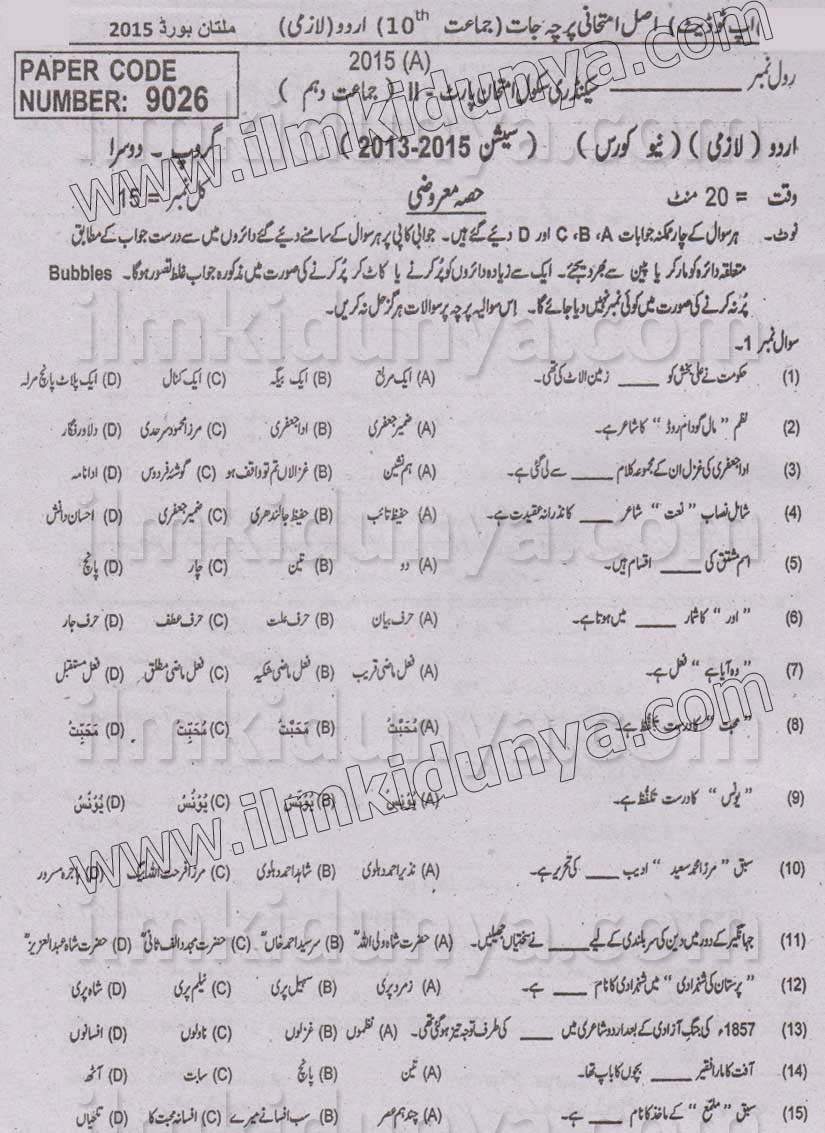 اپ ٹو ڈیٹ) اصل امتحانی پرچہ جات (جماعت 10th) اردو (لازمی) ملتان بورڈ 2015
PAPER CODE
NUMBER: 9026
2015 (A)
رول نمبر
سیکنڈری سکول امتحان پارٹ - II ( جماعت دہم )
اردو ( لازمی ) ( نیو کورس ) ( سیشن 2015-2013 ) گروپ - دوسرا
وقت = 20 منٹ حصہ معروضی کل نمبر = 15
نوٹ۔ ہر سوال کے چار ممکنہ جوابات A، B، C اور D دیئے گئے ہیں۔ جوابی کاپی پر ہر سوال کے سامنے دیئے گئے دائروں میں سے درست جواب کے مطابق
متعلقہ دائرہ کو مارکر یا پین سے بھر دیجئے۔ ایک سے زیادہ دائروں کو پُر کرنے یا کاٹ کر پُر کرنے کی صورت میں مذکورہ جواب غلط تصور ہوگا۔ Bubbles
پُر نہ کرنے کی صورت میں کوئی نمبر نہیں دیا جائے گا۔ اس سوالیہ پرچہ پر سوالات ہرگز حل نہ کریں۔
سوال نمبر 1۔
(1) حکومت نے علی بخش کو ____ زمین الاٹ کی تھی۔ (A) ایک مربع (B) ایک بیگہ (C) ایک کنال (D) ایک پلاٹ پانچ مرلہ
(2) نظم " مال گودام روڈ " کا شاعر ہے۔ (A) ضمیر جعفری (B) ادا جعفری (C) مرزا محمود سرحدی (D) دلاور فگار
(3) ادا جعفری کی غزل ان کے مجموعہ کلام ____ سے لی گئی ہے۔ (A) ہم نشین (B) غزالاں تم تو واقف ہو (C) گوشۂ فردوس (D) ادا نامہ
(4) شامل نصاب " نعت " شاعر ____ کا نذرانہ عقیدت ہے۔ (A) حفیظ تائب (B) حفیظ جالندھری (C) ضمیر جعفری (D) احسان دانش
(5) اسم مشتق کی ____ اقسام ہیں۔ (A) دو (B) تین (C) چار (D) پانچ
(6) " اور " کا شمار ____ میں ہوتا ہے۔ (A) حرف بیان (B) حرف علت (C) حرف عطف (D) حرف جار
(7) " وہ آیا ہے " فعل ہے۔ (A) فعل ماضی قریب (B) فعل ماضی شکیہ (C) فعل ماضی مطلق (D) فعل مستقبل
(8) " محبت " کا درست تلفظ ہے۔ (A) (B) (C) (D)
(9) " یونس " کا درست تلفظ ہے۔ (A) (B) (C) (D)
(10) سبق " مرزا محمد سعید " ادیب ____ کی تحریر ہے۔ (A) نذیر احمد دہلوی (B) شاہد احمد دہلوی (C) مرزا فرحت اللہ بیگ (D) ہاجرہ مسرور
(11) جہانگیر کے دور میں دین کی سربلندی کے لیے ____ نے سختیاں جھیلیں۔ (A) حضرت شاہ ولی اللہؒ (B) سرسید احمد خاںؒ (C) حضرت مجدد الف ثانیؒ (D) حضرت شاہ عبدالعزیزؒ
(12) " پرستان کی شہزادی " میں شہزادی کا نام ____ ہے۔ (A) زمرد پری (B) سہیل پری (C) نیلم پری (D) شاہ پری
(13) 1857ء کی جنگ آزادی کے بعد اردو شاعری میں ____ کی طرف توجہ تیز ہو گئی تھی۔ (A) نظموں (B) غزلوں (C) ناولوں (D) افسانوں
(14) آفت کا مارا فقیر ____ بچوں کا باپ تھا۔ (A) تین (B) پانچ (C) سات (D) آٹھ
(15) سبق " ملمع " کے ماخذ کا نام ____ ہے۔ (A) چند ہم عصر (B) سب افسانے میرے (C) افسانہ محبت کا (D) تلخیاں
www.ilmkidunya.com
www.ilmkidunya.com